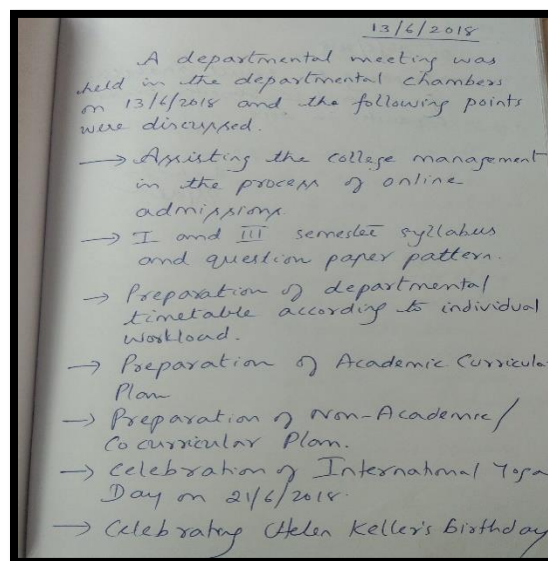 13/6/2018
A departmental meeting was
held in the departmental chambers
on 13/6/2018 and the following points
were discussed.
→ Assisting the college management
in the process of online
admissions.
→ I and III semester syllabus
and question paper pattern.
→ Preparation of departmental
timetable according to individual
workload.
→ Preparation of Academic Curricula
Plan
→ Preparation of Non-Academic/
Cocurricular Plan.
→ Celebration of International Yoga
Day on 21/6/2018.
→ Celebrating Helen Keller's birthday